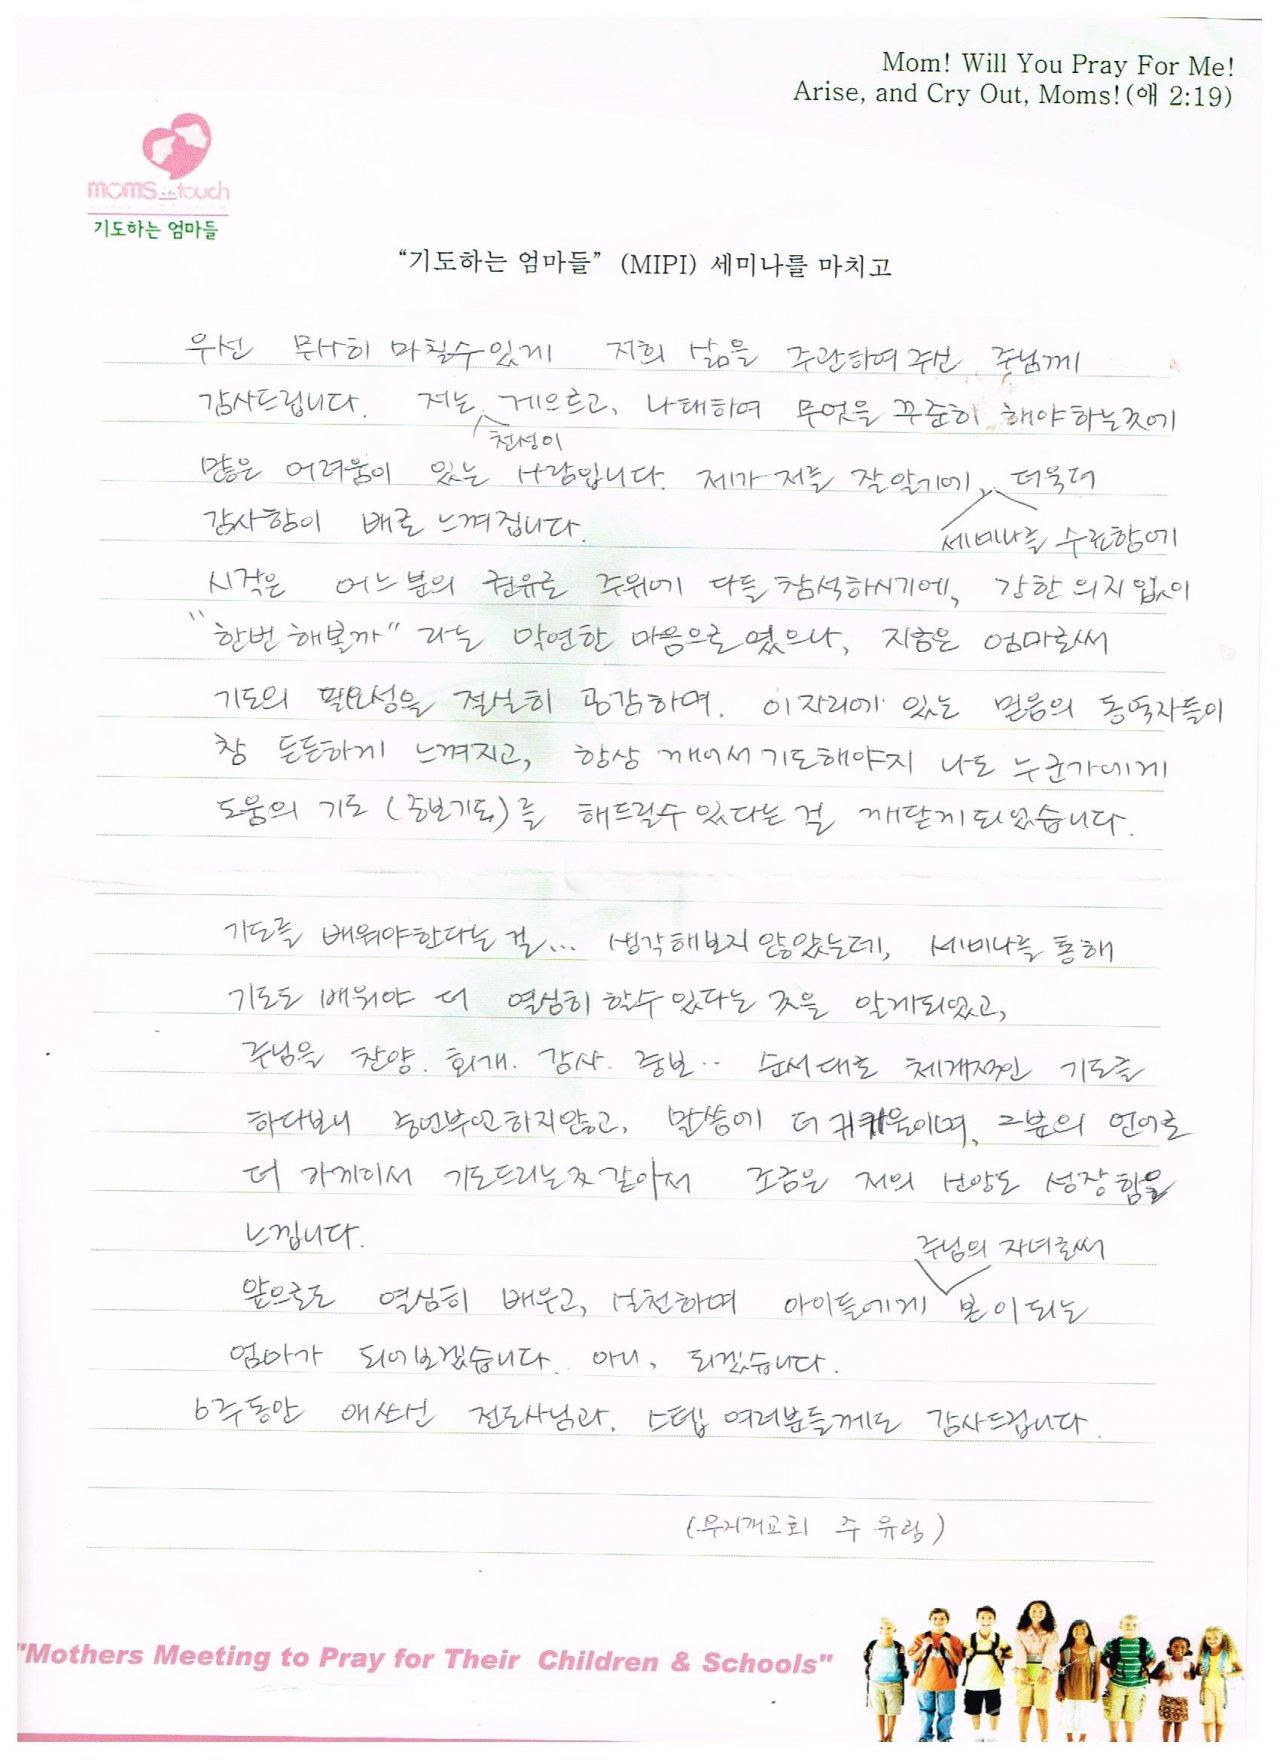 Mom! Will You Pray For Me!
Arise, and Cry Out, Moms!(애 2:19)
moms in touch
기도하는 엄마들
“기도하는 엄마들” (MIPI) 세미나를 마치고
우선 무사히 마칠수있게 저희 삶을 주관하여주신 주님께
감사드립니다. 저는 게으르고, 나태하여 무엇을 꾸준히 해야하는것에
천성이
많은 어려움이 있는 사람입니다. 제가 저를 잘알기에, 더욱더
감사함이 배로 느껴집니다.
세미나를 수료함에
시작은 어느분의 권유로 주위에 다들 참석하시기에, 강한의지없이
"한번 해볼까" 라는 막연한 마음으로였으나, 지금은 엄마로써
기도의 필요성을 절실히 공감하며. 이자리에 있는 믿음의 동역자들이
참 든든하게 느껴지고, 항상 깨어서 기도해야지 나도 누군가에게
도움의 기도 (중보기도)를 해드릴수있다는 걸 깨닫게되었습니다.
기도를 배워야한다는 걸... 생각해보지않았는데, 세미나를 통해
기도도 배워야 더 열심히 할수있다는 것을 알게되었고,
주님을 찬양. 회개. 감사. 중보.. 순서대로 체계적인 기도를
하다보니 중언부언하지않고, 말씀에 더 귀기울이며, 그분의 언어로
더 가까이서 기도드리는것같아서 조금은 저의 신앙도 성장함을
느낍니다.
주님의 자녀로써
앞으로도 열심히 배우고, 실천하며 아이들에게 본이되는
엄마가 되어보겠습니다. 아니, 되겠습니다.
6주동안 애쓰신 전도사님과, 스텝 여러분들께도 감사드립니다.
(무지개교회 주유림)
"Mothers Meeting to Pray for Their Children & Schools"